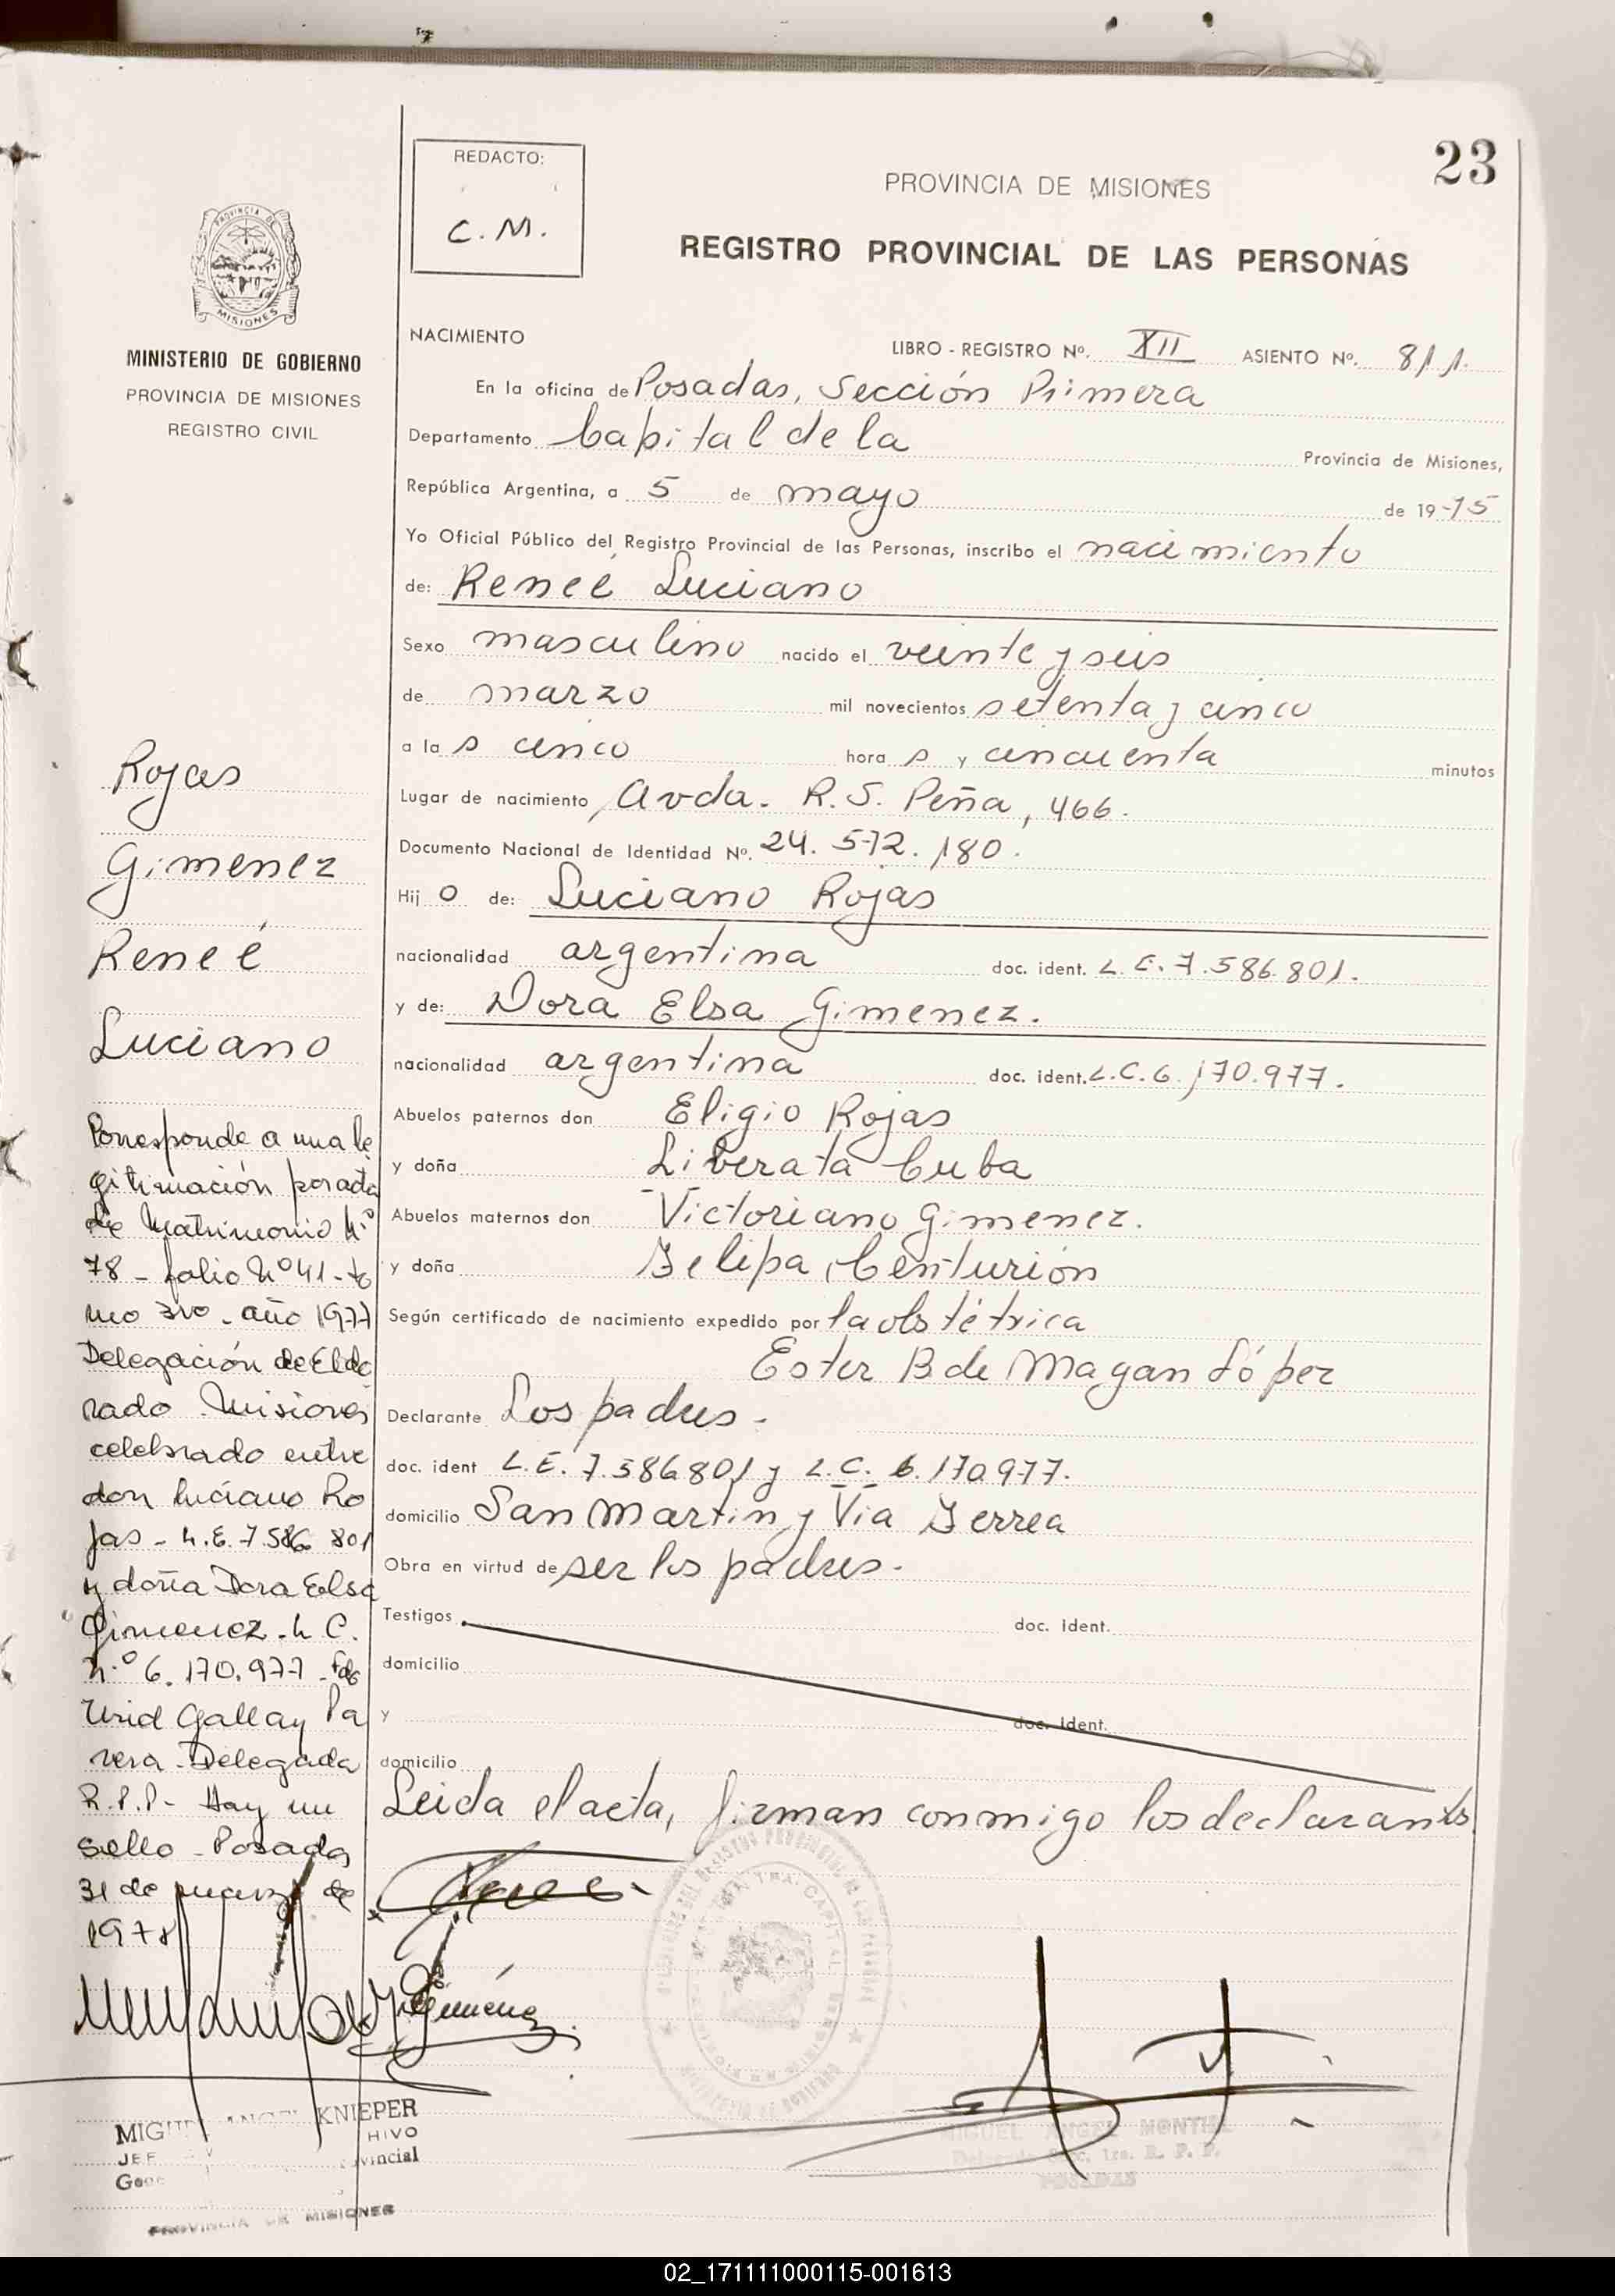 23
REDACTO:
C. M.
PROVINCIA DE MISIONES
REGISTRO PROVINCIAL DE LAS PERSONAS
PROVINCIA DE
MISIONES
MINISTERIO DE GOBIERNO
PROVINCIA DE MISIONES
REGISTRO CIVIL
NACIMIENTO
LIBRO - REGISTRO Nº. XII ASIENTO Nº. 811.
En la oficina de Posadas, Sección Primera
Departamento Capital de la Provincia de Misiones,
República Argentina, a 5 de mayo de 19 75
Yo Oficial Público del Registro Provincial de las Personas, inscribo el nacimiento
de: Reneé Luciano
Sexo masculino nacido el veinte y seis
de marzo mil novecientos setenta y cinco
a la s cinco hora s y cincuenta minutos
Lugar de nacimiento Avda. R. S. Peña, 466.
Documento Nacional de Identidad Nº. 24. 572. 180.
Hij o de: Luciano Rojas
nacionalidad argentina doc. ident. L. E. 7.586.801.
y de: Dora Elsa Gimenez.
nacionalidad argentina doc. ident. L.C. 6.170.977.
Abuelos paternos don Eligio Rojas
y doña Liberata Cuba
Abuelos maternos don Victoriano Gimenez.
y doña Felipa Centurión
Según certificado de nacimiento expedido por la obstétrica
Ester B de Magan López
Declarante Los padres.
doc. ident L.E. 7.586801 y L.C. 6.170977.
domicilio San Martin y Via Ferrea
Obra en virtud de ser los padres.
Testigos doc. ident.
domicilio
y doc. ident.
domicilio
Leida el acta, firman conmigo los declarants
Rojas
Gimenez
Reneé
Luciano
Corresponde a una le
gitimación por acta
de Matrimonio Nº
78 - folio Nº 41 - to
mo 3ro - año 1977
Delegación de Eldo
rado Misiones
celebrado entre
don Luciano Ro
jas - L.E. 7.586 801
y doña Dora Elsa
Gimenez - L C.
n.º 6.170.977 - Fdo
Gallay Pa
rera - Delegada
R.P.P - Hay un
sello - Posadas
31 de marzo de
1978
KNIEPER
HIVO
JEF vincial
PROVINCIA DE MISIONES
MIGUEL ANGEL
R. P. P.
POSADAS
02_171111000115-001613